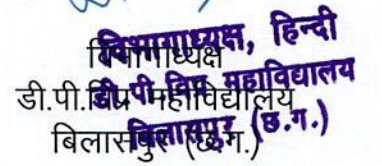 विभागाध्यक्ष, हिन्दी
डी. पी. विप्र महाविद्यालय
बिलासपुर (छ.ग.)
विभागाध्यक्ष
डी.पी.विप्र महाविद्यालय
बिलासपुर (छ.ग.)